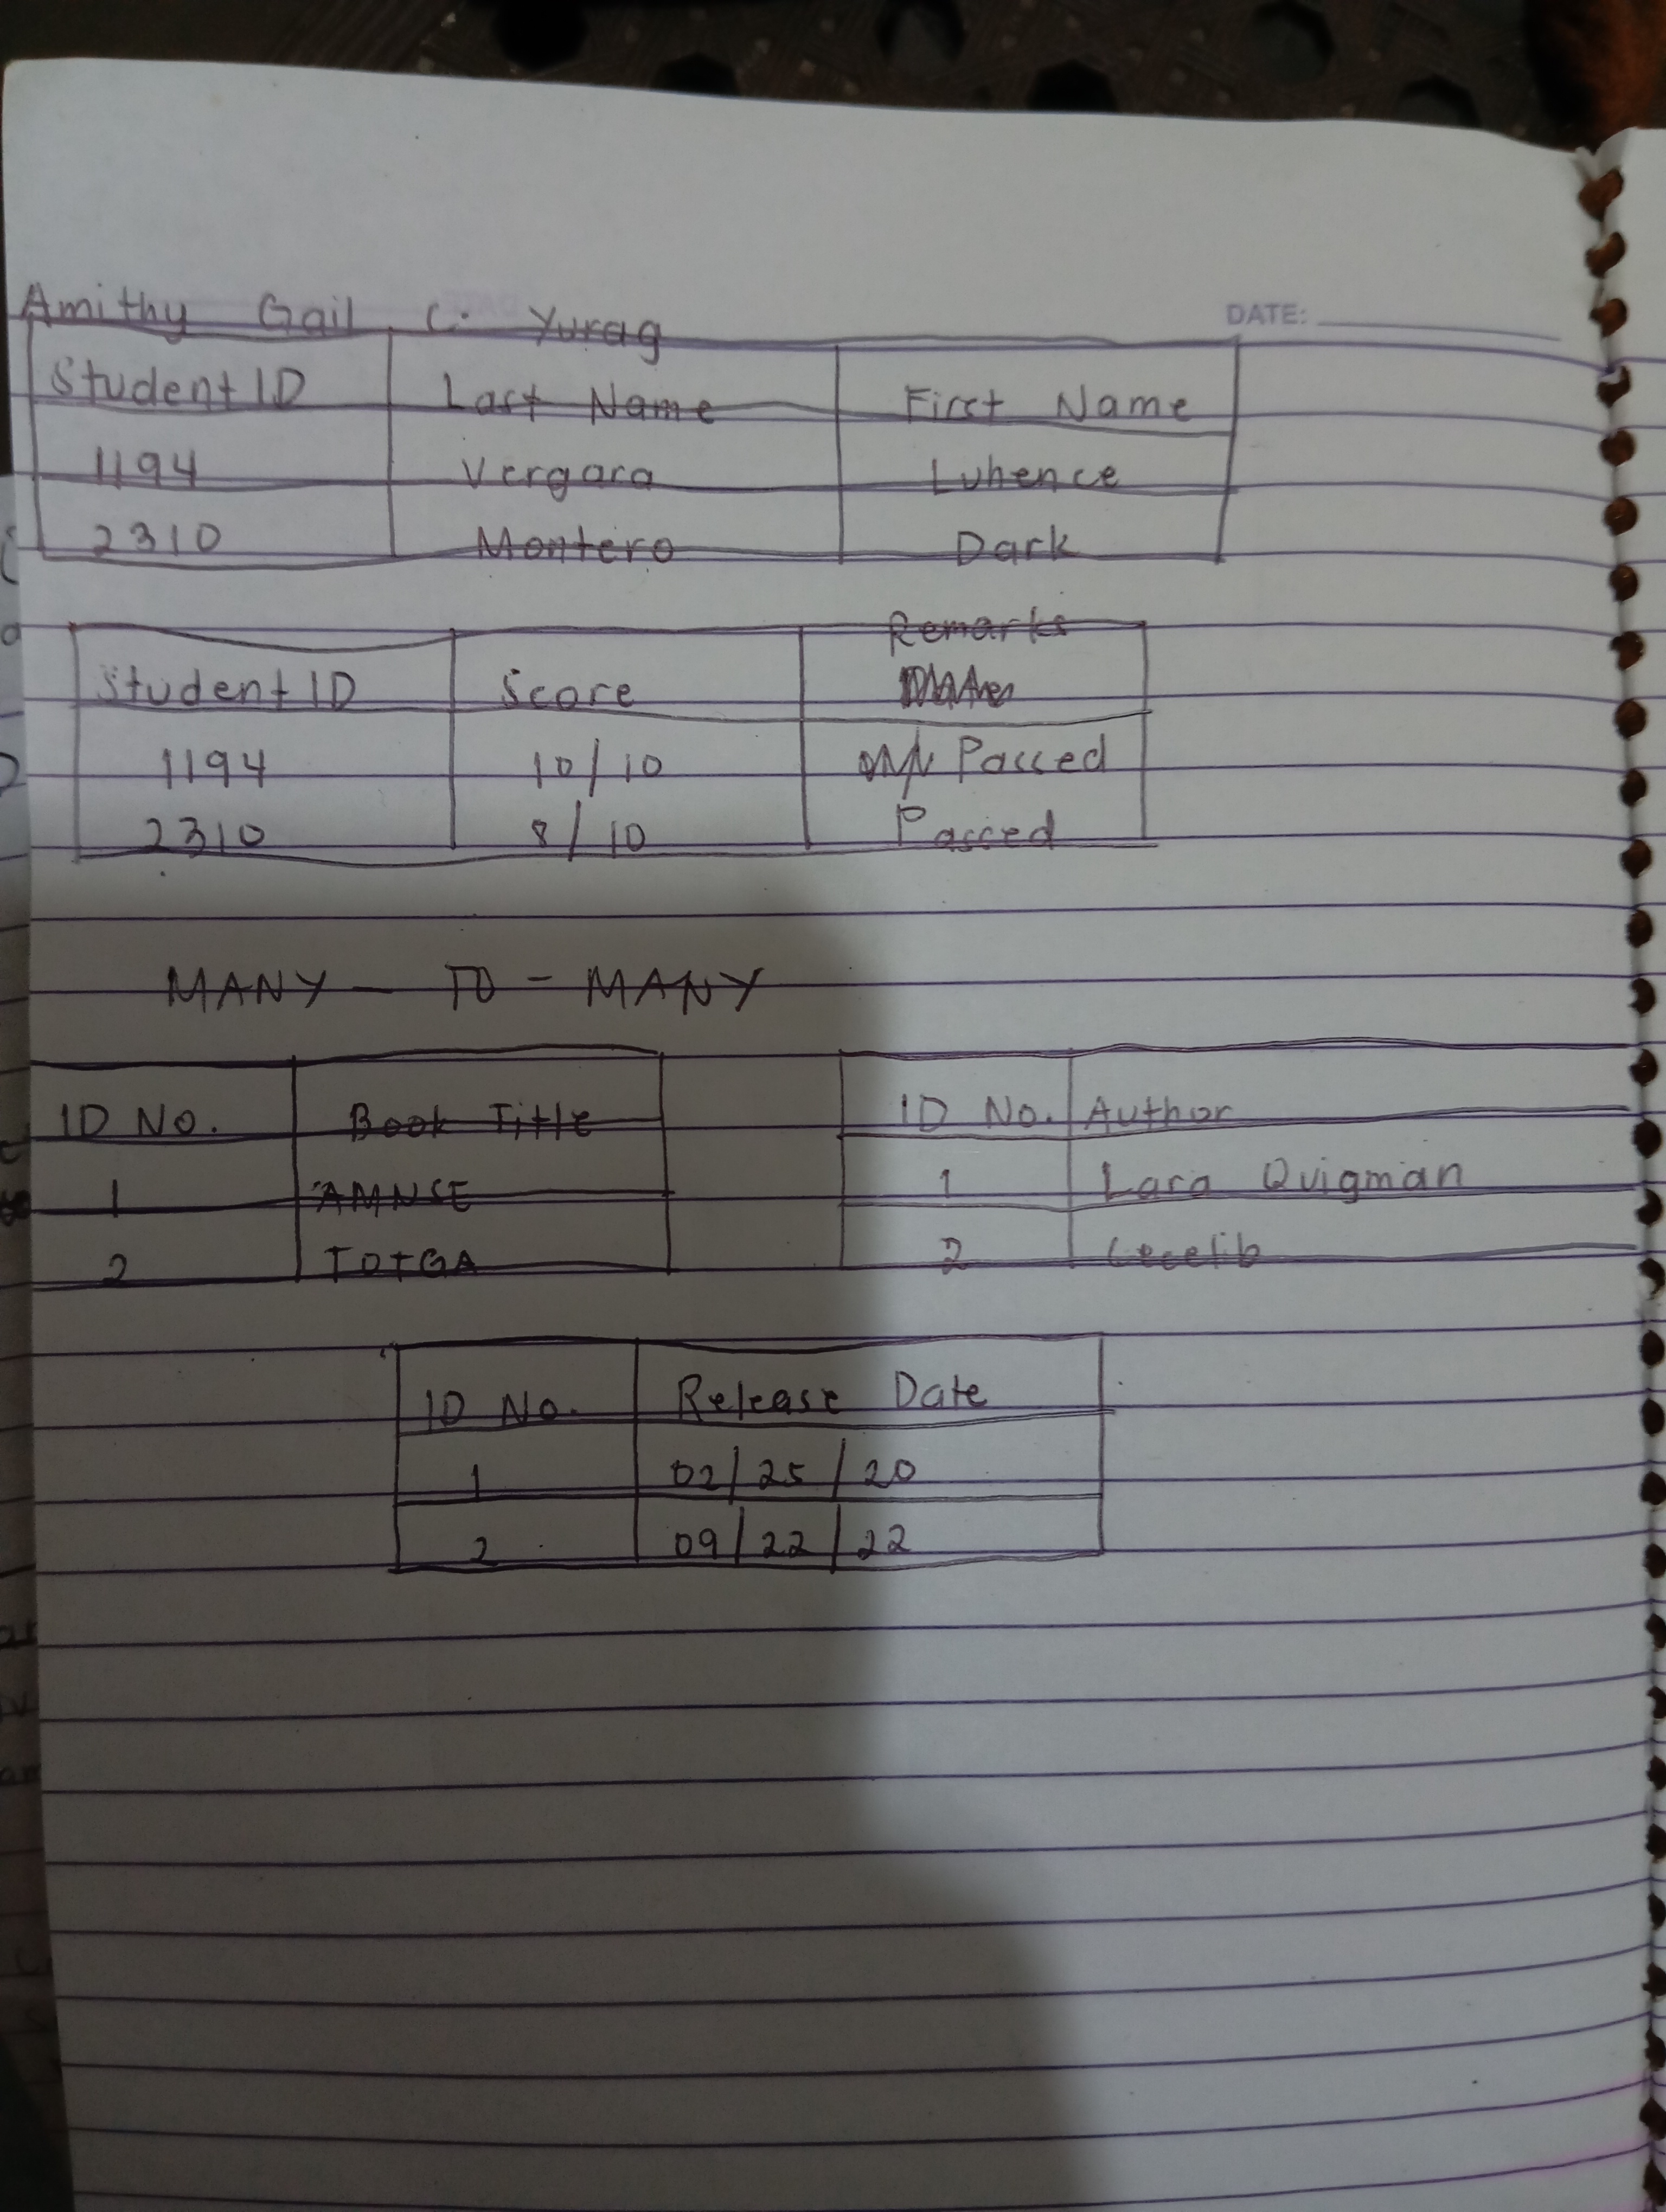 Amithy Gail C. Yurag
DATE:
Student ID Last Name First Name
1194 Vergara Luhence
2310 Montero Dark
Student ID Score Remarks
1194 10/10 Passed
2310 8/10 Passed
MANY - TO - MANY
ID No. Book Title
1 AMNSE
2 TOTGA
ID No. Author
1 Lara Quigman
2 Cecelib
ID No. Release Date
1 02/25/20
2 09/22/22